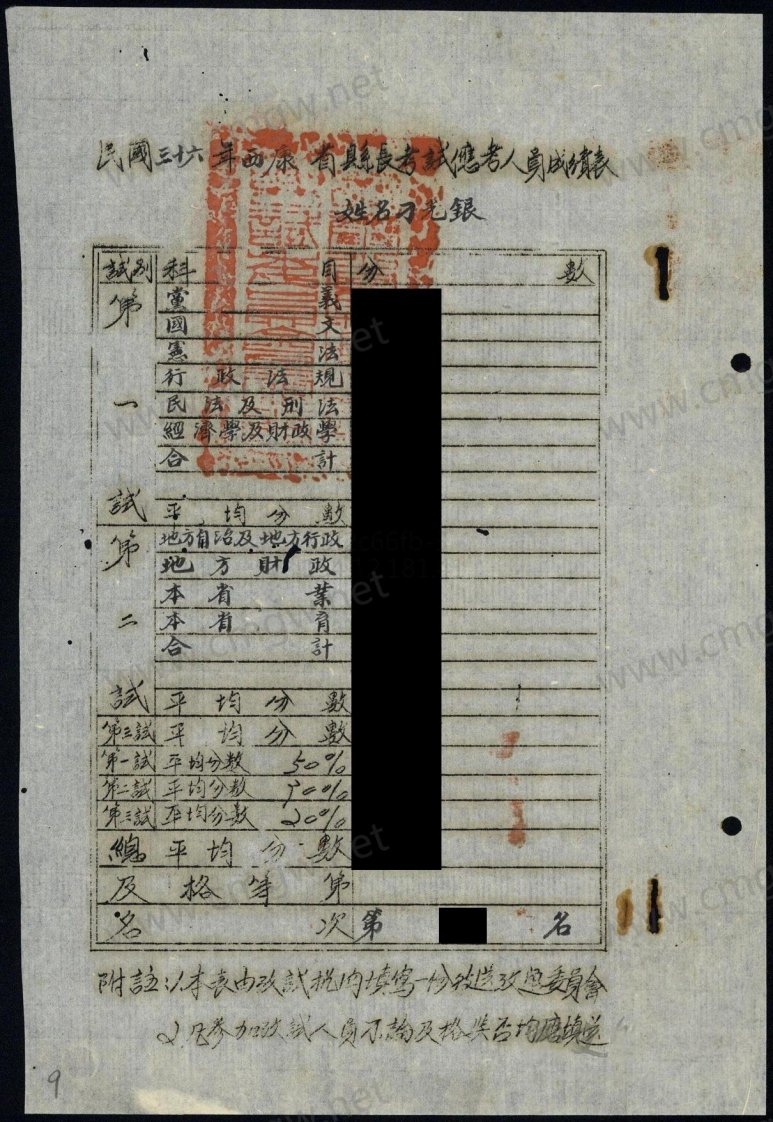 民國三十六年西康省縣長考試應考人員成績表
姓名刁光銀
試別 科目 分數
第一試 黨義
國文
憲法
行政法規
民法及刑法
經濟學及財政學
合計
平均分數
第二試 地方自治及地方行政
地方財政
本省業
本省育
合計
平均分數
第三試 平均分數
第一試 平均分數 50%
第二試 平均分數
第三試 平均分數 20%
總平均分數
及格等第
名次 第 名
附註:1.本表由攷試機內填寫一份彼送攷選委員會
2.凡參加攷試人員不論及格與否均應填送
9
www.cmgw.net